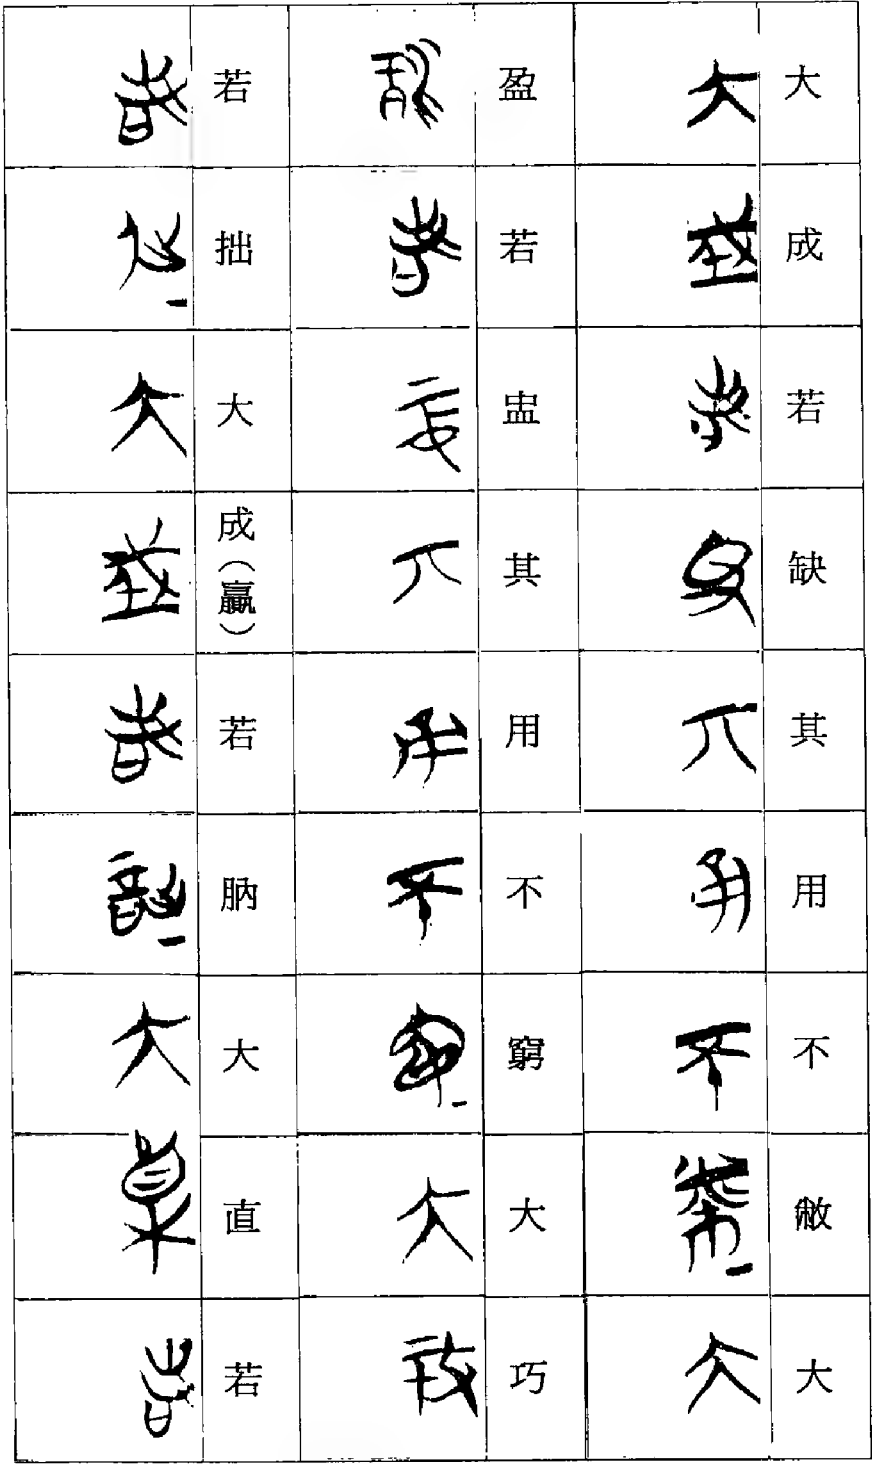 大成若缺其用不敝大
盈若盅其用不窮大巧
若拙大成（贏）若肭大直若